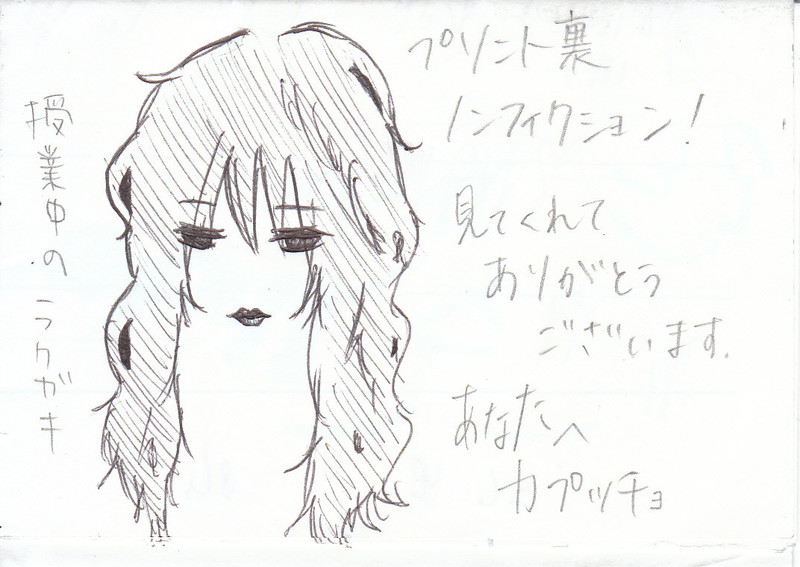 プリント裏
ノンフィクション!
見てくれて
ありがとう
ございます.
あなたへ
カプッチョ
授業中のラクガキ